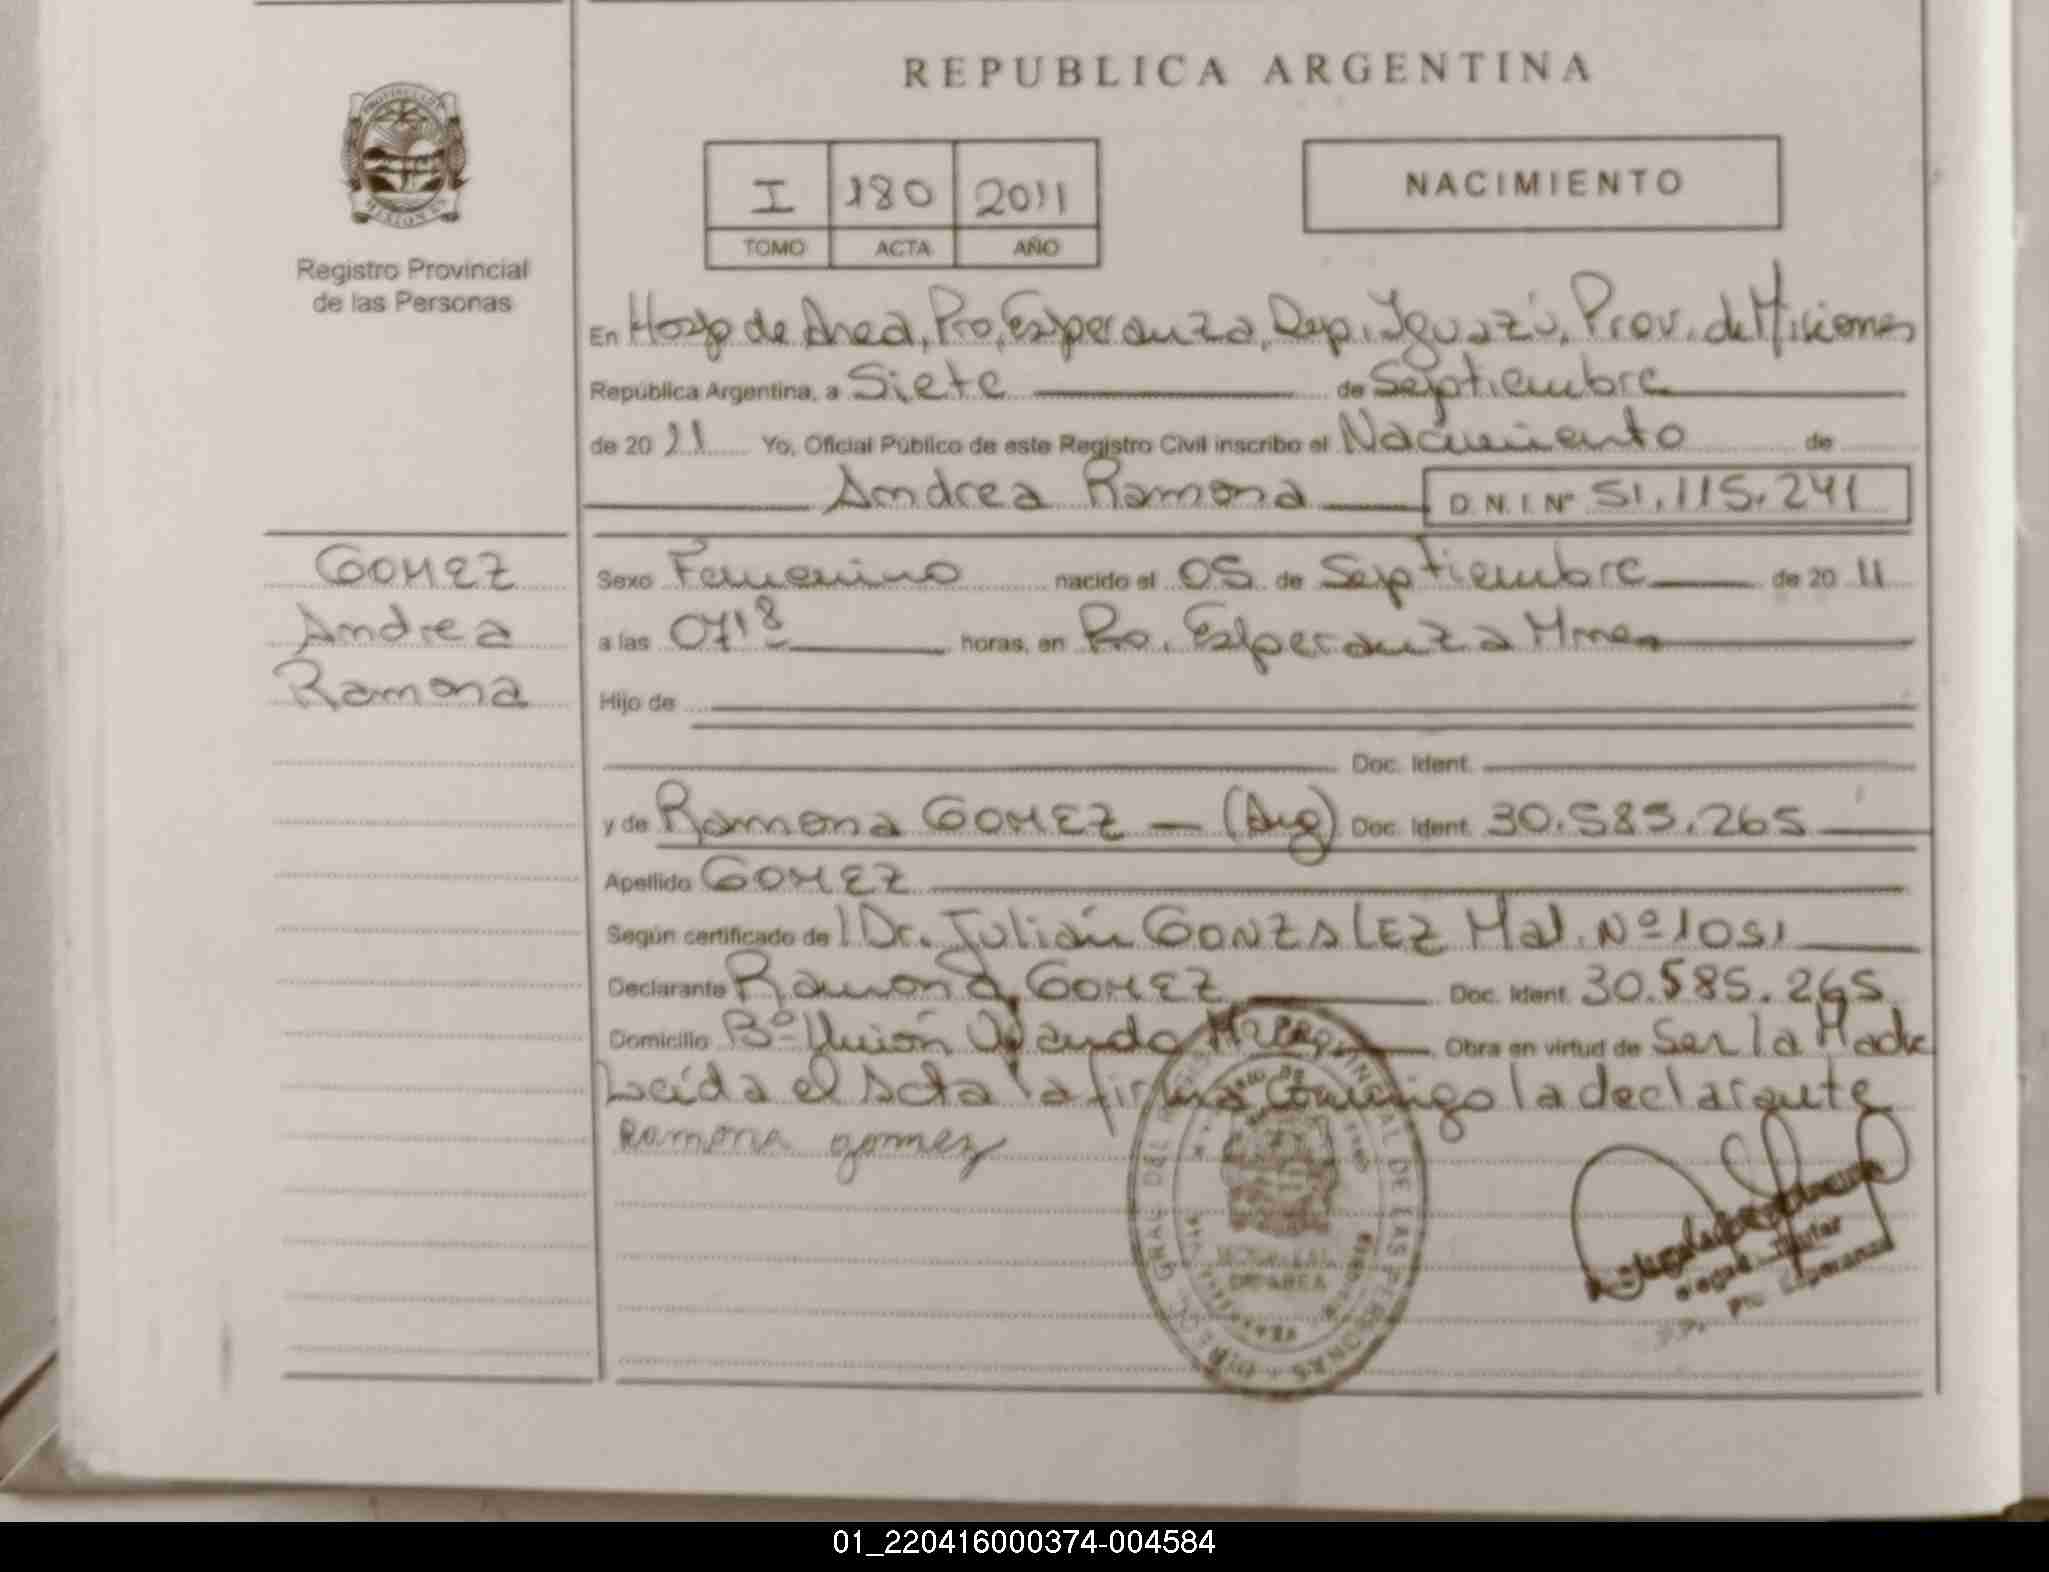 REPUBLICA ARGENTINA
PROVINCIA DE MISIONES
Registro Provincial
de las Personas
I 180 2011
TOMO ACTA AÑO
NACIMIENTO
En Hosp de Area, Pto, Esperanza, Dep. Iguazú, Prov. de Misiones
República Argentina, a Siete de Septiembre
de 2011 Yo, Oficial Público de este Registro Civil inscribo el Nacimiento de
Andrea Ramona D.N.I. Nº 51.115.241
GOMEZ
Andrea
Ramona
Sexo Femenino nacido el 05 de Septiembre de 2011
a las 07 18 horas, en Pto. Esperanza Mnes
Hijo de
Doc. Ident.
y de Ramona GOMEZ — (Arg) Doc. Ident. 30.585.265
Apellido GOMEZ
Según certificado del Dr. Julián GONZALEZ Mat. Nº 1051
Declarante Ramona GOMEZ Doc. Ident. 30.585.265
Domicilio Bº Unión Obra en virtud de Ser la Madre
Leída el acta la firma Conmigo la declarante
Ramona gomez
DIRECC. GRAL DEL REGISTRO PROVINCIAL DE LAS PERSONAS
HOSPITAL
DE AREA
Titular
Pto. Esperanza
01_220416000374-004584